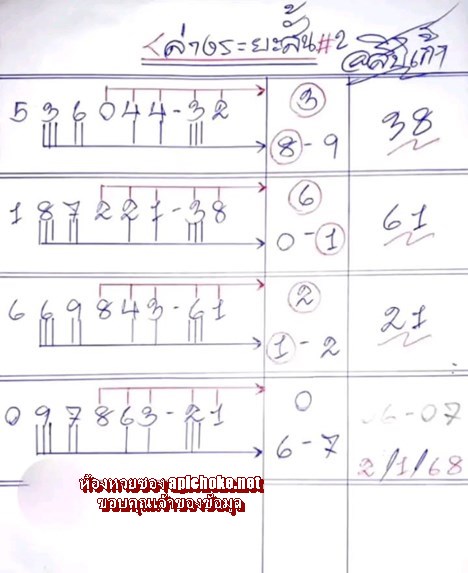 ล่างระยะสั้น#2
536044-32
3
8-9
38
187221-38
6
0-1
61
669843-61
2
1-2
21
097863-21
0
6-7
06-07
2/1/68
ห้องหวยซอง apichoke.net
ขอบคุณเจ้าของข้อมูล